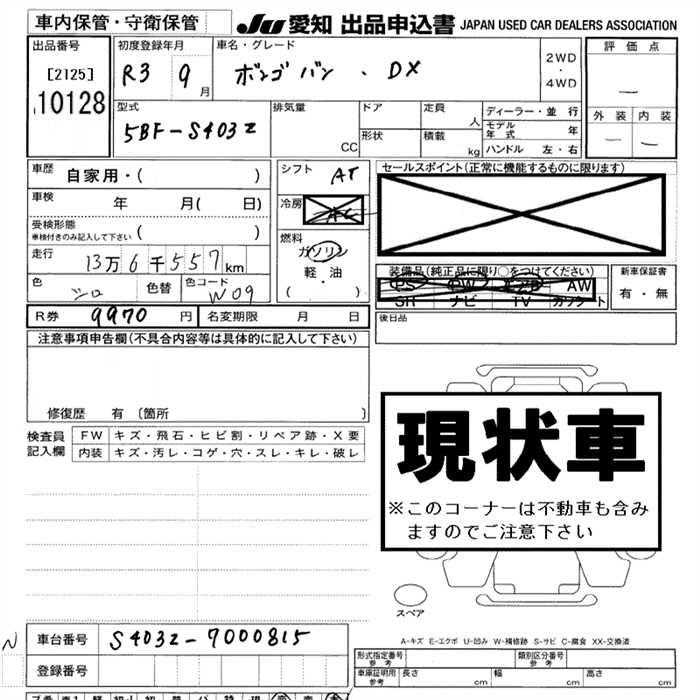 車内保管・守衛保管
JU 愛知 出品申込書 JAPAN USED CAR DEALERS ASSOCIATION
出品番号 初度登録年月 車名・グレード 評価点
[2125] R3 9月 ボンゴ バン . DX 2WD・4WD —
10128
型式 排気量 ドア 定員 ディーラー・並行 外装 内装
5BF-S403Z CC 形状 人 モデル年式 年 — —
積載 kg ハンドル 左・右
車歴 自家用・( ) シフト AT セールスポイント(正常に機能するものに限ります)
車検 年 月( 日) 冷房 AC
受検形態 ( )
車検付きのみ記入して下さい
燃料
走行 13万6千557km ガソリン
軽・油
( ・ )
装備品(純正品に限り○をつけてください) 新車保証書
PS PW エアB AW 有・無
SH ナビ TV カセット
色 シロ 色替 色コード W09
R券 9970円 名変期限 月 日 後日品
注意事項申告欄(不具合内容等は具体的に記入して下さい)
修復歴 有 〔箇所 〕
検査員 FW キズ・飛石・ヒビ割・リペア跡・X要
記入欄 内装 キズ・汚レ・コゲ・穴・スレ・キレ・破レ
現状車
※このコーナーは不動車も含み
ますのでご注意下さい
スペア
A-キズ E-エクボ U-凹み W-補修跡 S-サビ C-腐食 XX-交換済
N 車台番号 S403Z-7000815
登録番号
形式指定番号 参考 類別区分番号 参考
車庫証明用 参考 長さ cm 幅 cm 高さ cm